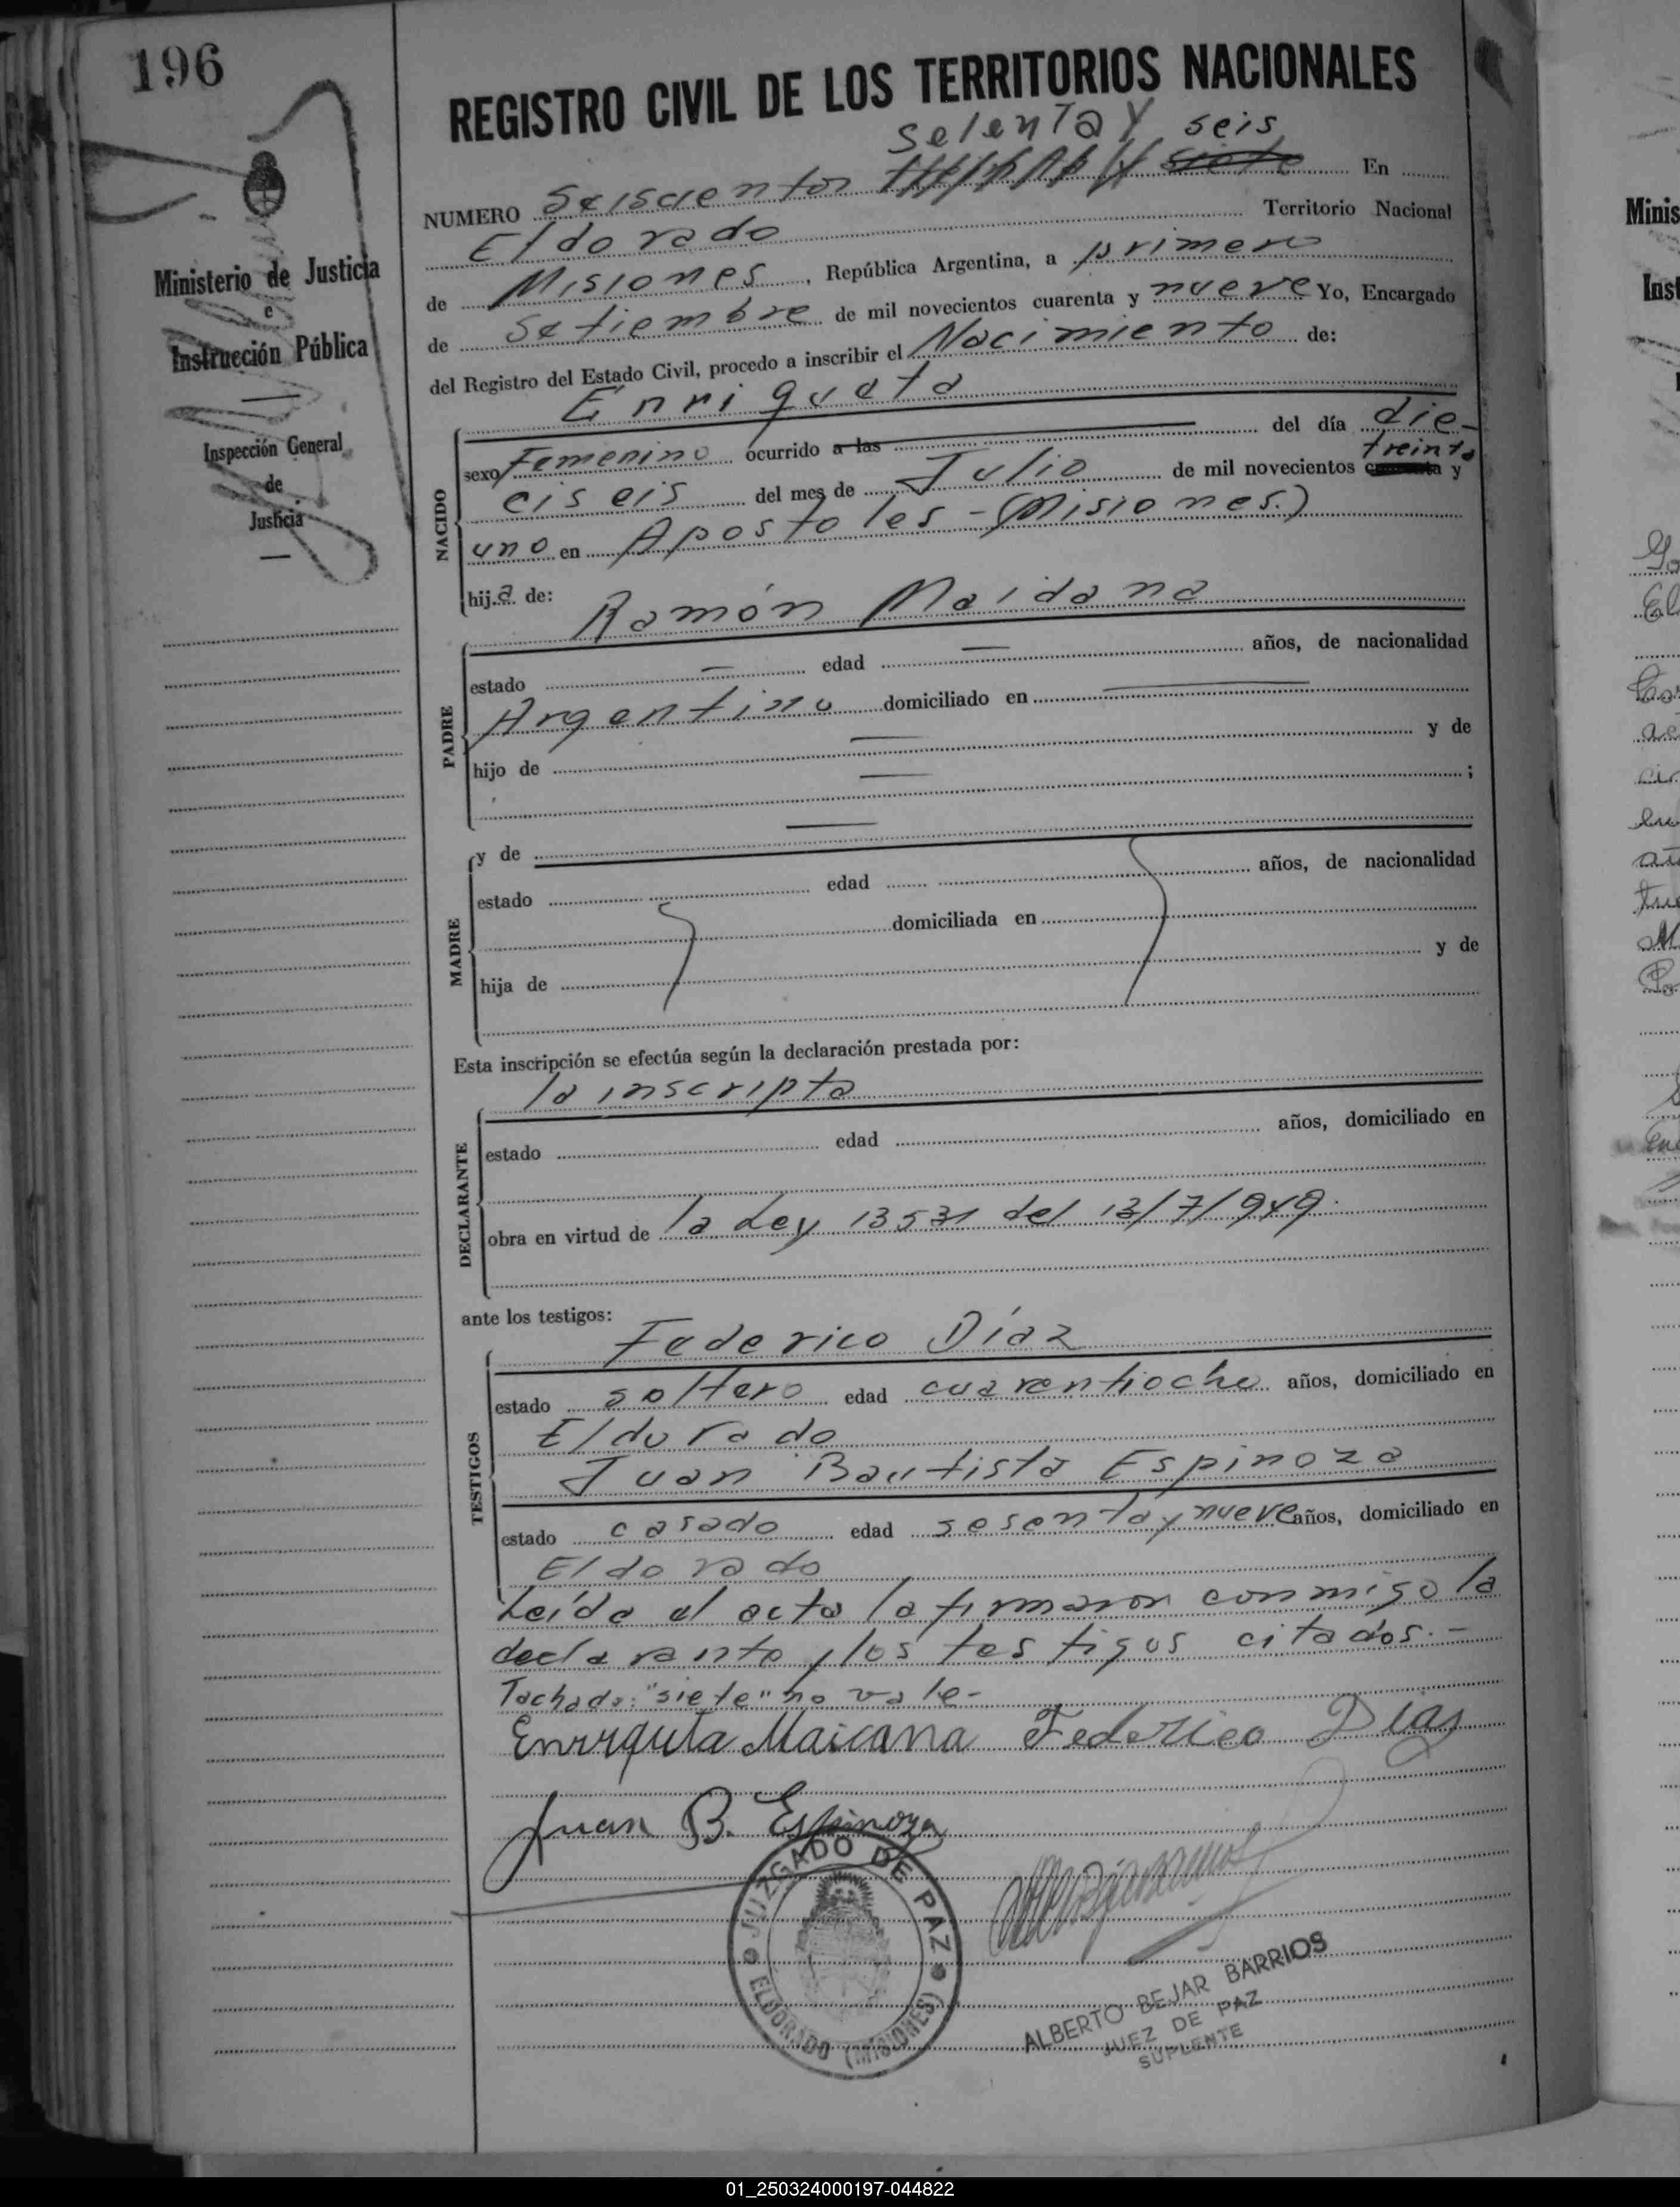 196
REGISTRO CIVIL DE LOS TERRITORIOS NACIONALES
Ministerio de Justicia
e
Instrucción Pública
Inspección General
de
Justicia
setenta y seis
NUMERO Seiscientos siete En
Eldorado Territorio Nacional
de Misiones, República Argentina, a primero
de Setiembre de mil novecientos cuarenta y nueve Yo, Encargado
del Registro del Estado Civil, procedo a inscribir el Nacimiento de:
Enriqueta
NACIDO
sexo Femenino ocurrido a las del día die-
treinta
ciseis del mes de Julio de mil novecientos cuarenta y
uno en Apostoles - (Misiones.)
hija de: Ramón Maidana
PADRE
estado — edad — años, de nacionalidad
Argentino domiciliado en —
hijo de — y de
— ;
MADRE
y de —
estado edad años, de nacionalidad
domiciliada en
hija de y de
Esta inscripción se efectúa según la declaración prestada por:
la inscripta
DECLARANTE
estado edad años, domiciliado en
obra en virtud de la Ley 13531 del 13/7/949.
ante los testigos:
Federico Díaz
TESTIGOS
estado soltero edad cuarentiocho años, domiciliado en
Eldorado
Juan Bautista Espinoza
estado casado edad sesenta y nueve años, domiciliado en
Eldorado
Leída el acta la firmaron conmigo la
declarante y los testigos citados.-
Tachado: "siete" no vale-
Enriqueta Maidana Federico Dias
Juan B. Espinoza
JUZGADO DE PAZ
ELDORADO (MISIONES)
ALBERTO BEJAR BARRIOS
JUEZ DE PAZ
SUPLENTE
Minis
Inst
01_250324000197-044822